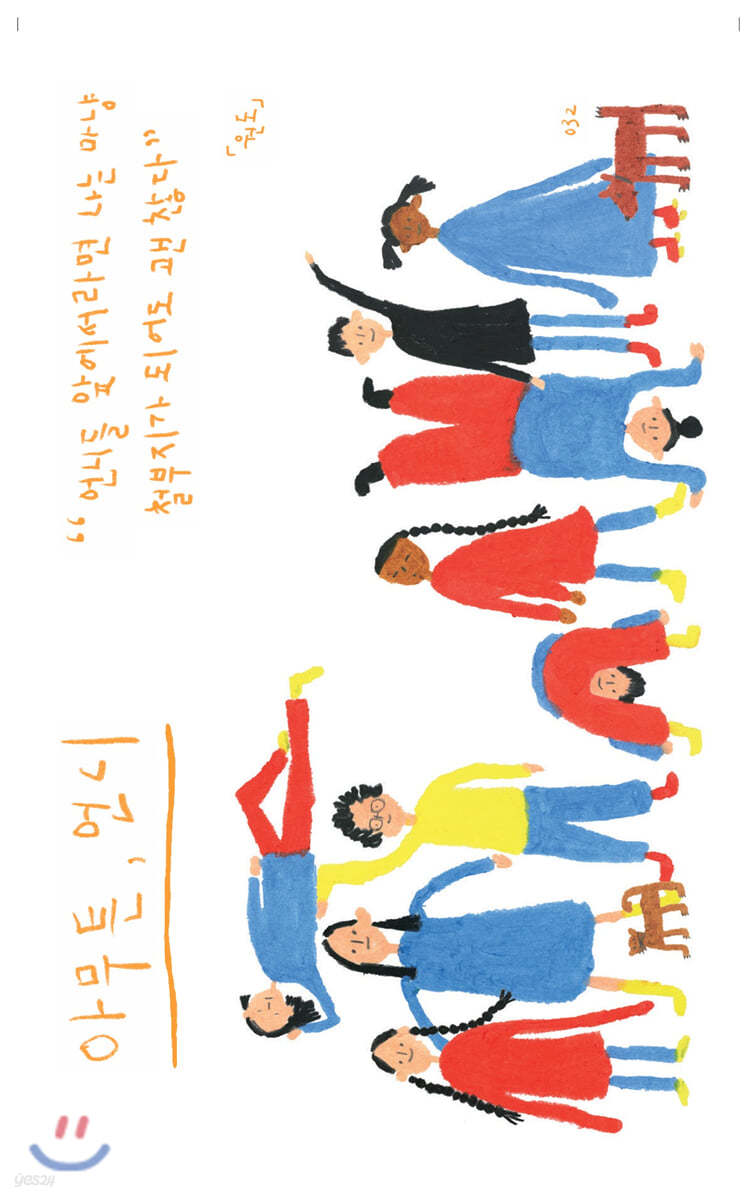 아무튼, 언니
“언니들 앞에서라면 나는 마냥
철부지가 되어도 괜찮다”
「원도」
032
yes24